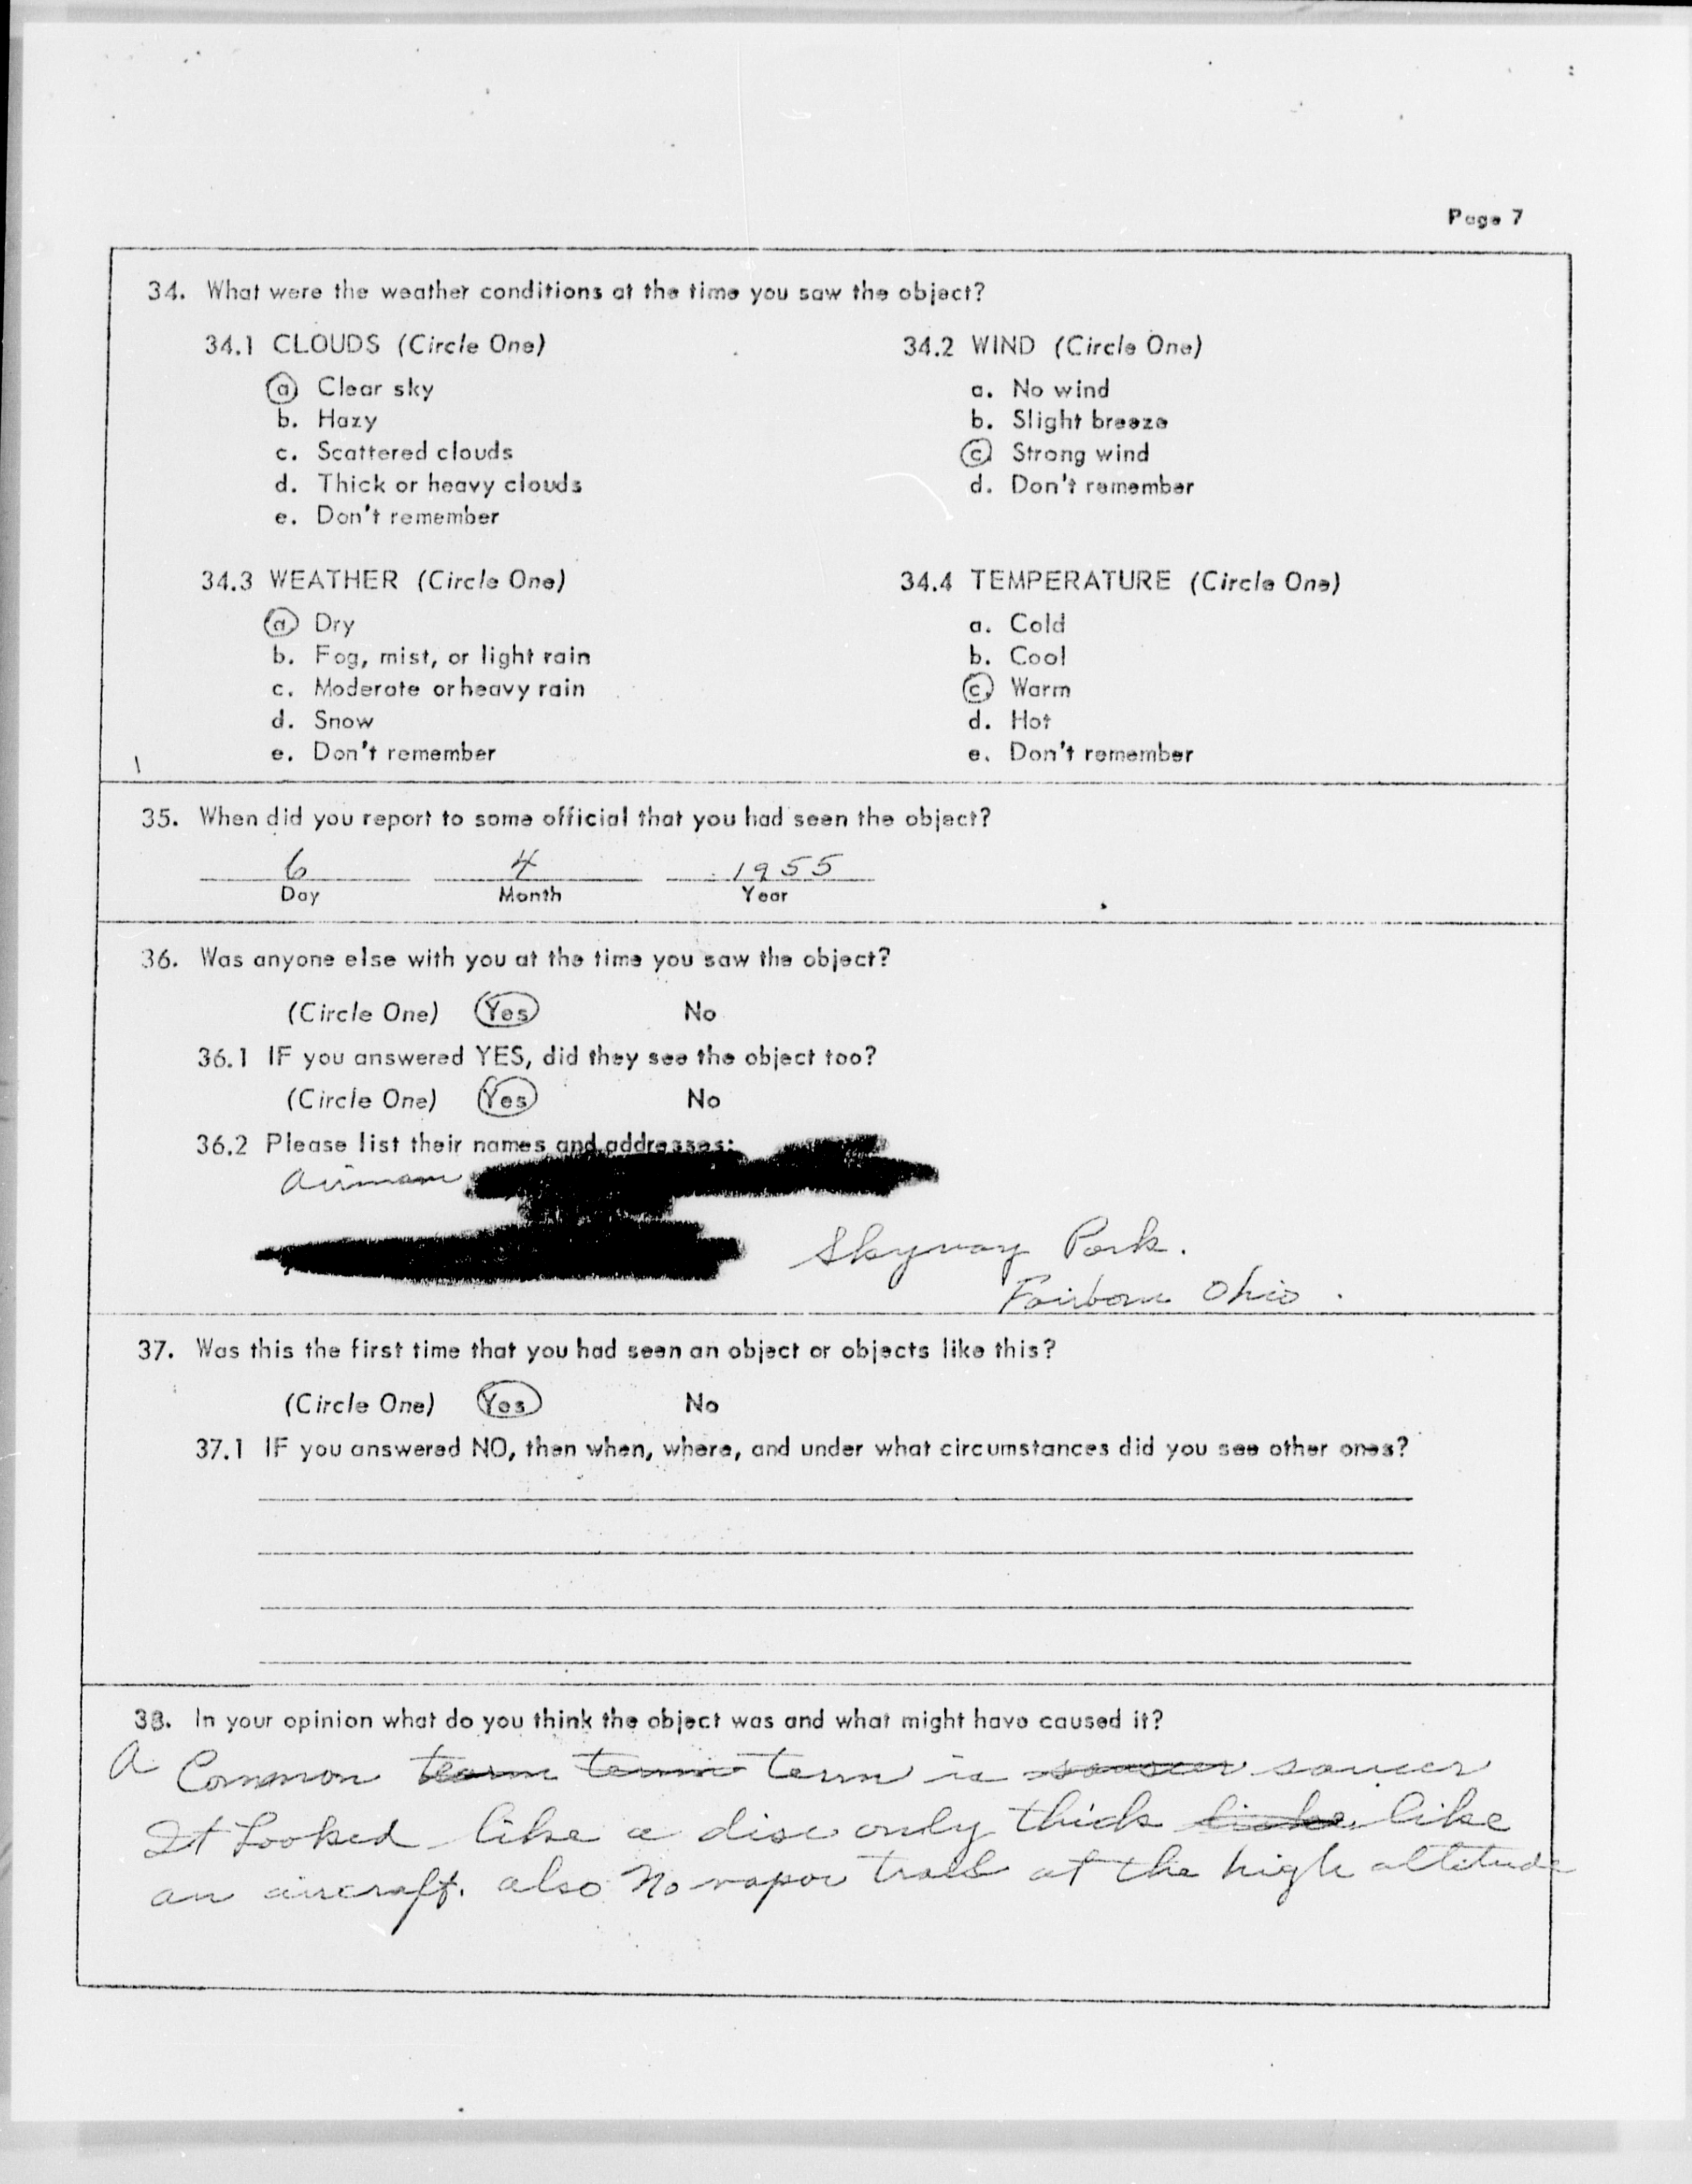 Page 7
34. What were the weather conditions at the time you saw the object?
34.1 CLOUDS (Circle One)
a Clear sky
b. Hazy
c. Scattered clouds
d. Thick or heavy clouds
e. Don't remember
34.2 WIND (Circle One)
a. No wind
b. Slight breeze
c Strong wind
d. Don't remember
34.3 WEATHER (Circle One)
a Dry
b. Fog, mist, or light rain
c. Moderate or heavy rain
d. Snow
e. Don't remember
34.4 TEMPERATURE (Circle One)
a. Cold
b. Cool
c. Warm
d. Hot
e. Don't remember
35. When did you report to some official that you had seen the object?
6 4 1955
Day Month Year
36. Was anyone else with you at the time you saw the object?
(Circle One) Yes No
36.1 IF you answered YES, did they see the object too?
(Circle One) Yes No
36.2 Please list their names and addresses:
Airman
Skyway Park.
Fairborn Ohio.
37. Was this the first time that you had seen an object or objects like this?
(Circle One) Yes No
37.1 IF you answered NO, then when, where, and under what circumstances did you see other ones?
38. In your opinion what do you think the object was and what might have caused it?
A Common term is saucer
It Looked like a disc only thick like
an aircraft. also No vapor trail at the high altitude